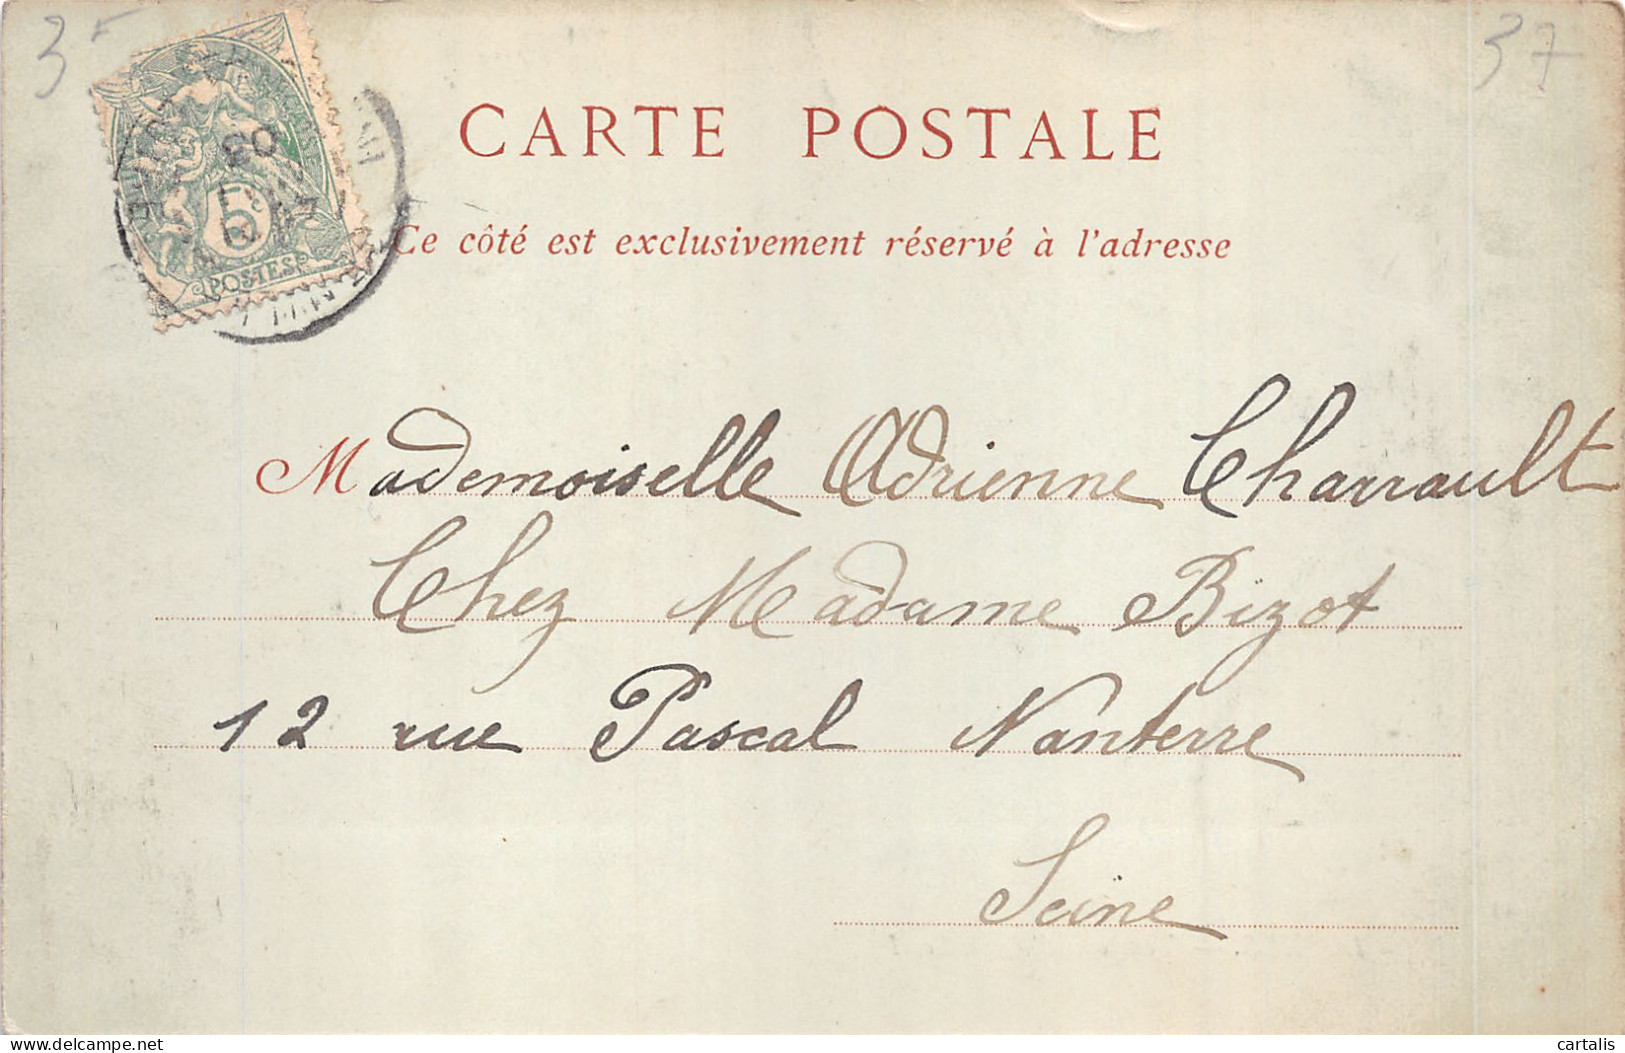 3F
37
CARTE POSTALE
Ce côté est exclusivement réservé à l'adresse
5c
POSTES
03
Mademoiselle Adrienne Charrault
Chez Madame Bizot
12 rue Pascal Nanterre
Seine
cartalis
www.delcampe.net